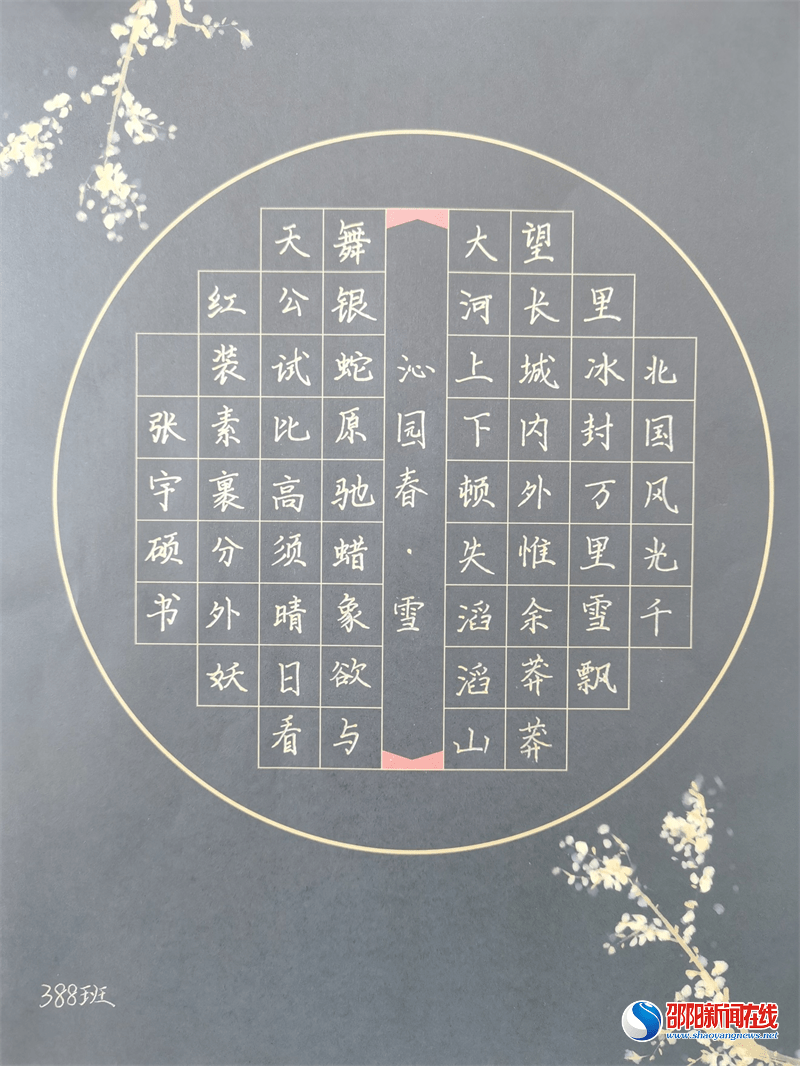 北国风光千
里冰封万里雪飘
望长城内外惟余莽莽
大河上下顿失滔滔山
沁园春·雪
舞银蛇原驰蜡象欲与
天公试比高须晴日看
红装素裹分外妖
张宇硕书
388班
邵阳新闻在线
www.shaoyangnews.net